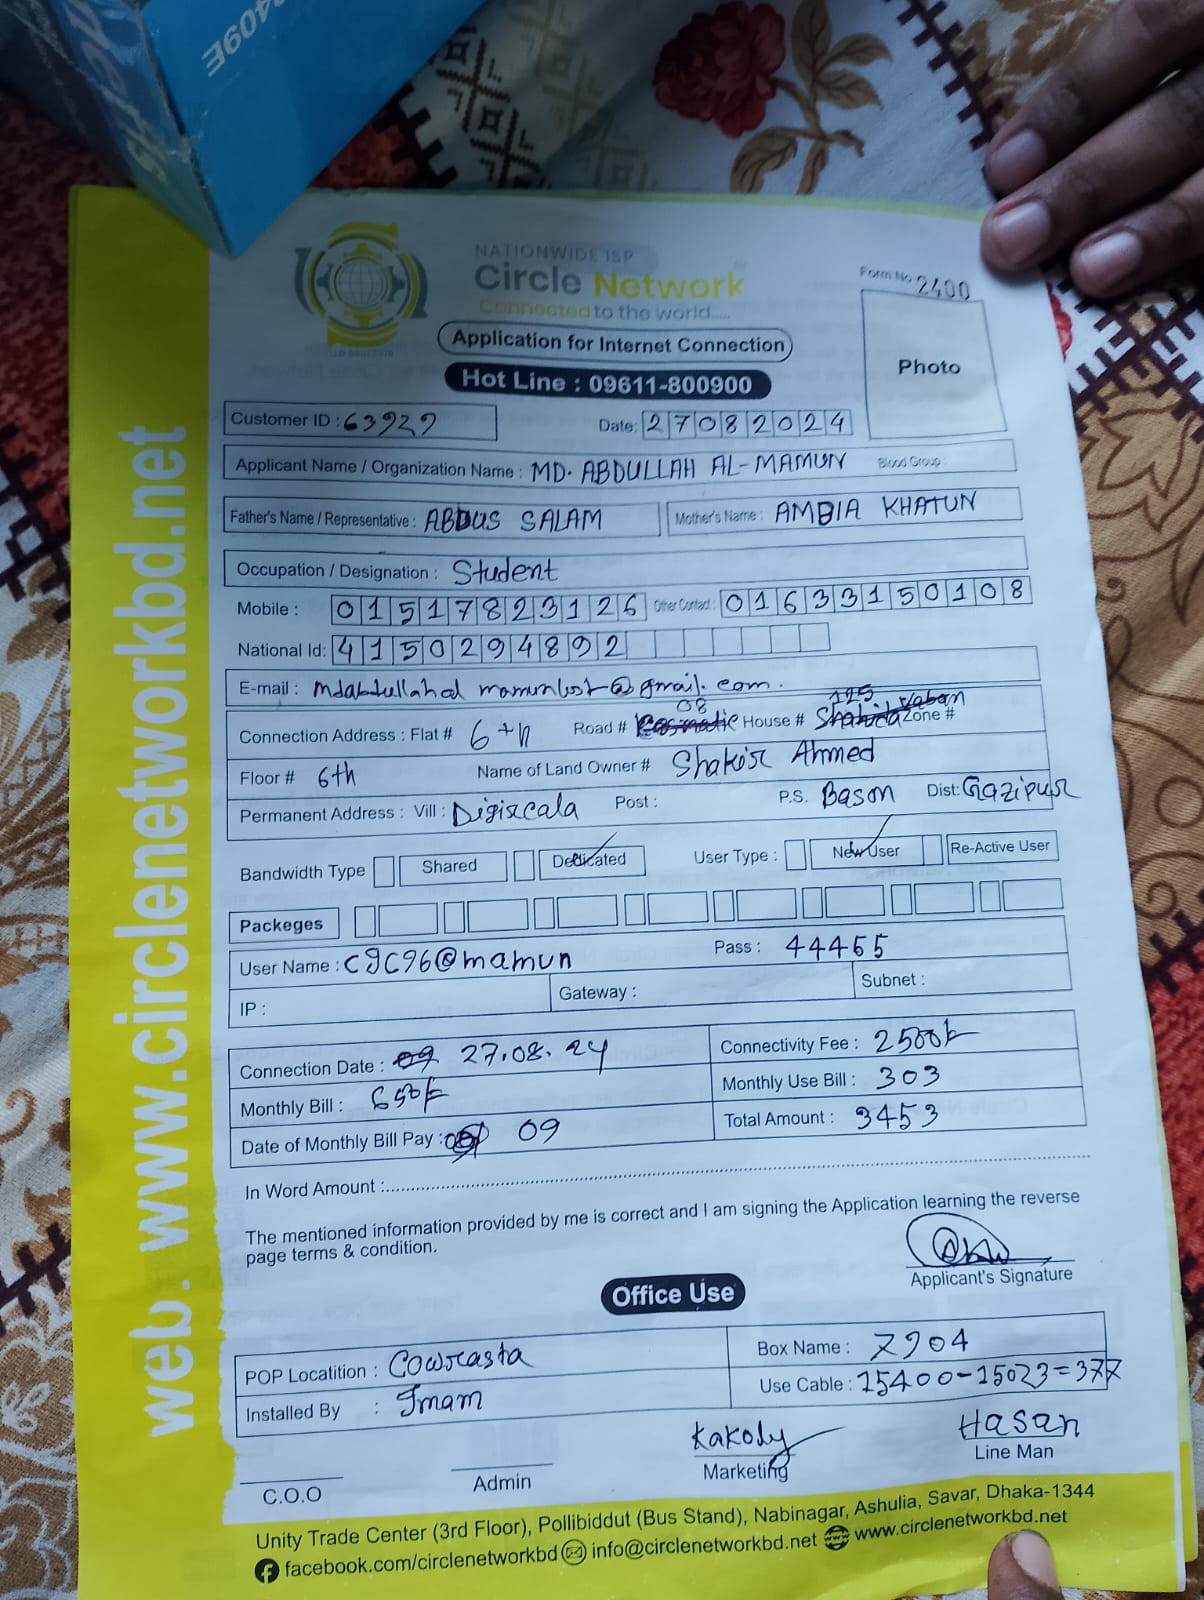 409E
NATIONWIDE ISP
Circle Network
Connected to the world.....
Form No 2400
Application for Internet Connection
Hot Line : 09611-800900
Photo
Customer ID : 63929
Date: 27082024
Applicant Name / Organization Name : MD. ABDULLAH AL-MAMUN Blood Group :
Father's Name / Representative : ABDUS SALAM Mother's Name : AMBIA KHATUN
Occupation / Designation : Student
Mobile : 01517823126 Other Contact : 01633150108
National Id: 4150294892
E-mail : @gmail.com.
Connection Address : Flat # 6th Road # 08 House # 125 Zone #
Floor # 6th Name of Land Owner # Shakir Ahmed
Permanent Address : Vill : Digircala Post : P.S. Bason Dist: Gazipur
Bandwidth Type Shared Dedicated User Type : New User Re-Active User
Packeges
User Name : c9c96@mamun Pass : 44455
IP : Gateway : Subnet :
Connection Date : 27.08.24 Connectivity Fee : 2500/-
Monthly Bill : 650/- Monthly Use Bill : 303
Date of Monthly Bill Pay : 09 Total Amount : 3453
In Word Amount :
The mentioned information provided by me is correct and I am signing the Application learning the reverse
page terms & condition.
Applicant's Signature
Office Use
POP Locatition : Cowrasta Box Name : 7904
Installed By : Imam Use Cable : 15400-15023=377
Kakoly Hasan
C.O.O Admin Marketing Line Man
Unity Trade Center (3rd Floor), Pollibiddut (Bus Stand), Nabinagar, Ashulia, Savar, Dhaka-1344
facebook.com/circlenetworkbd info@circlenetworkbd.net www.circlenetworkbd.net
web. www.circlenetworkbd.net